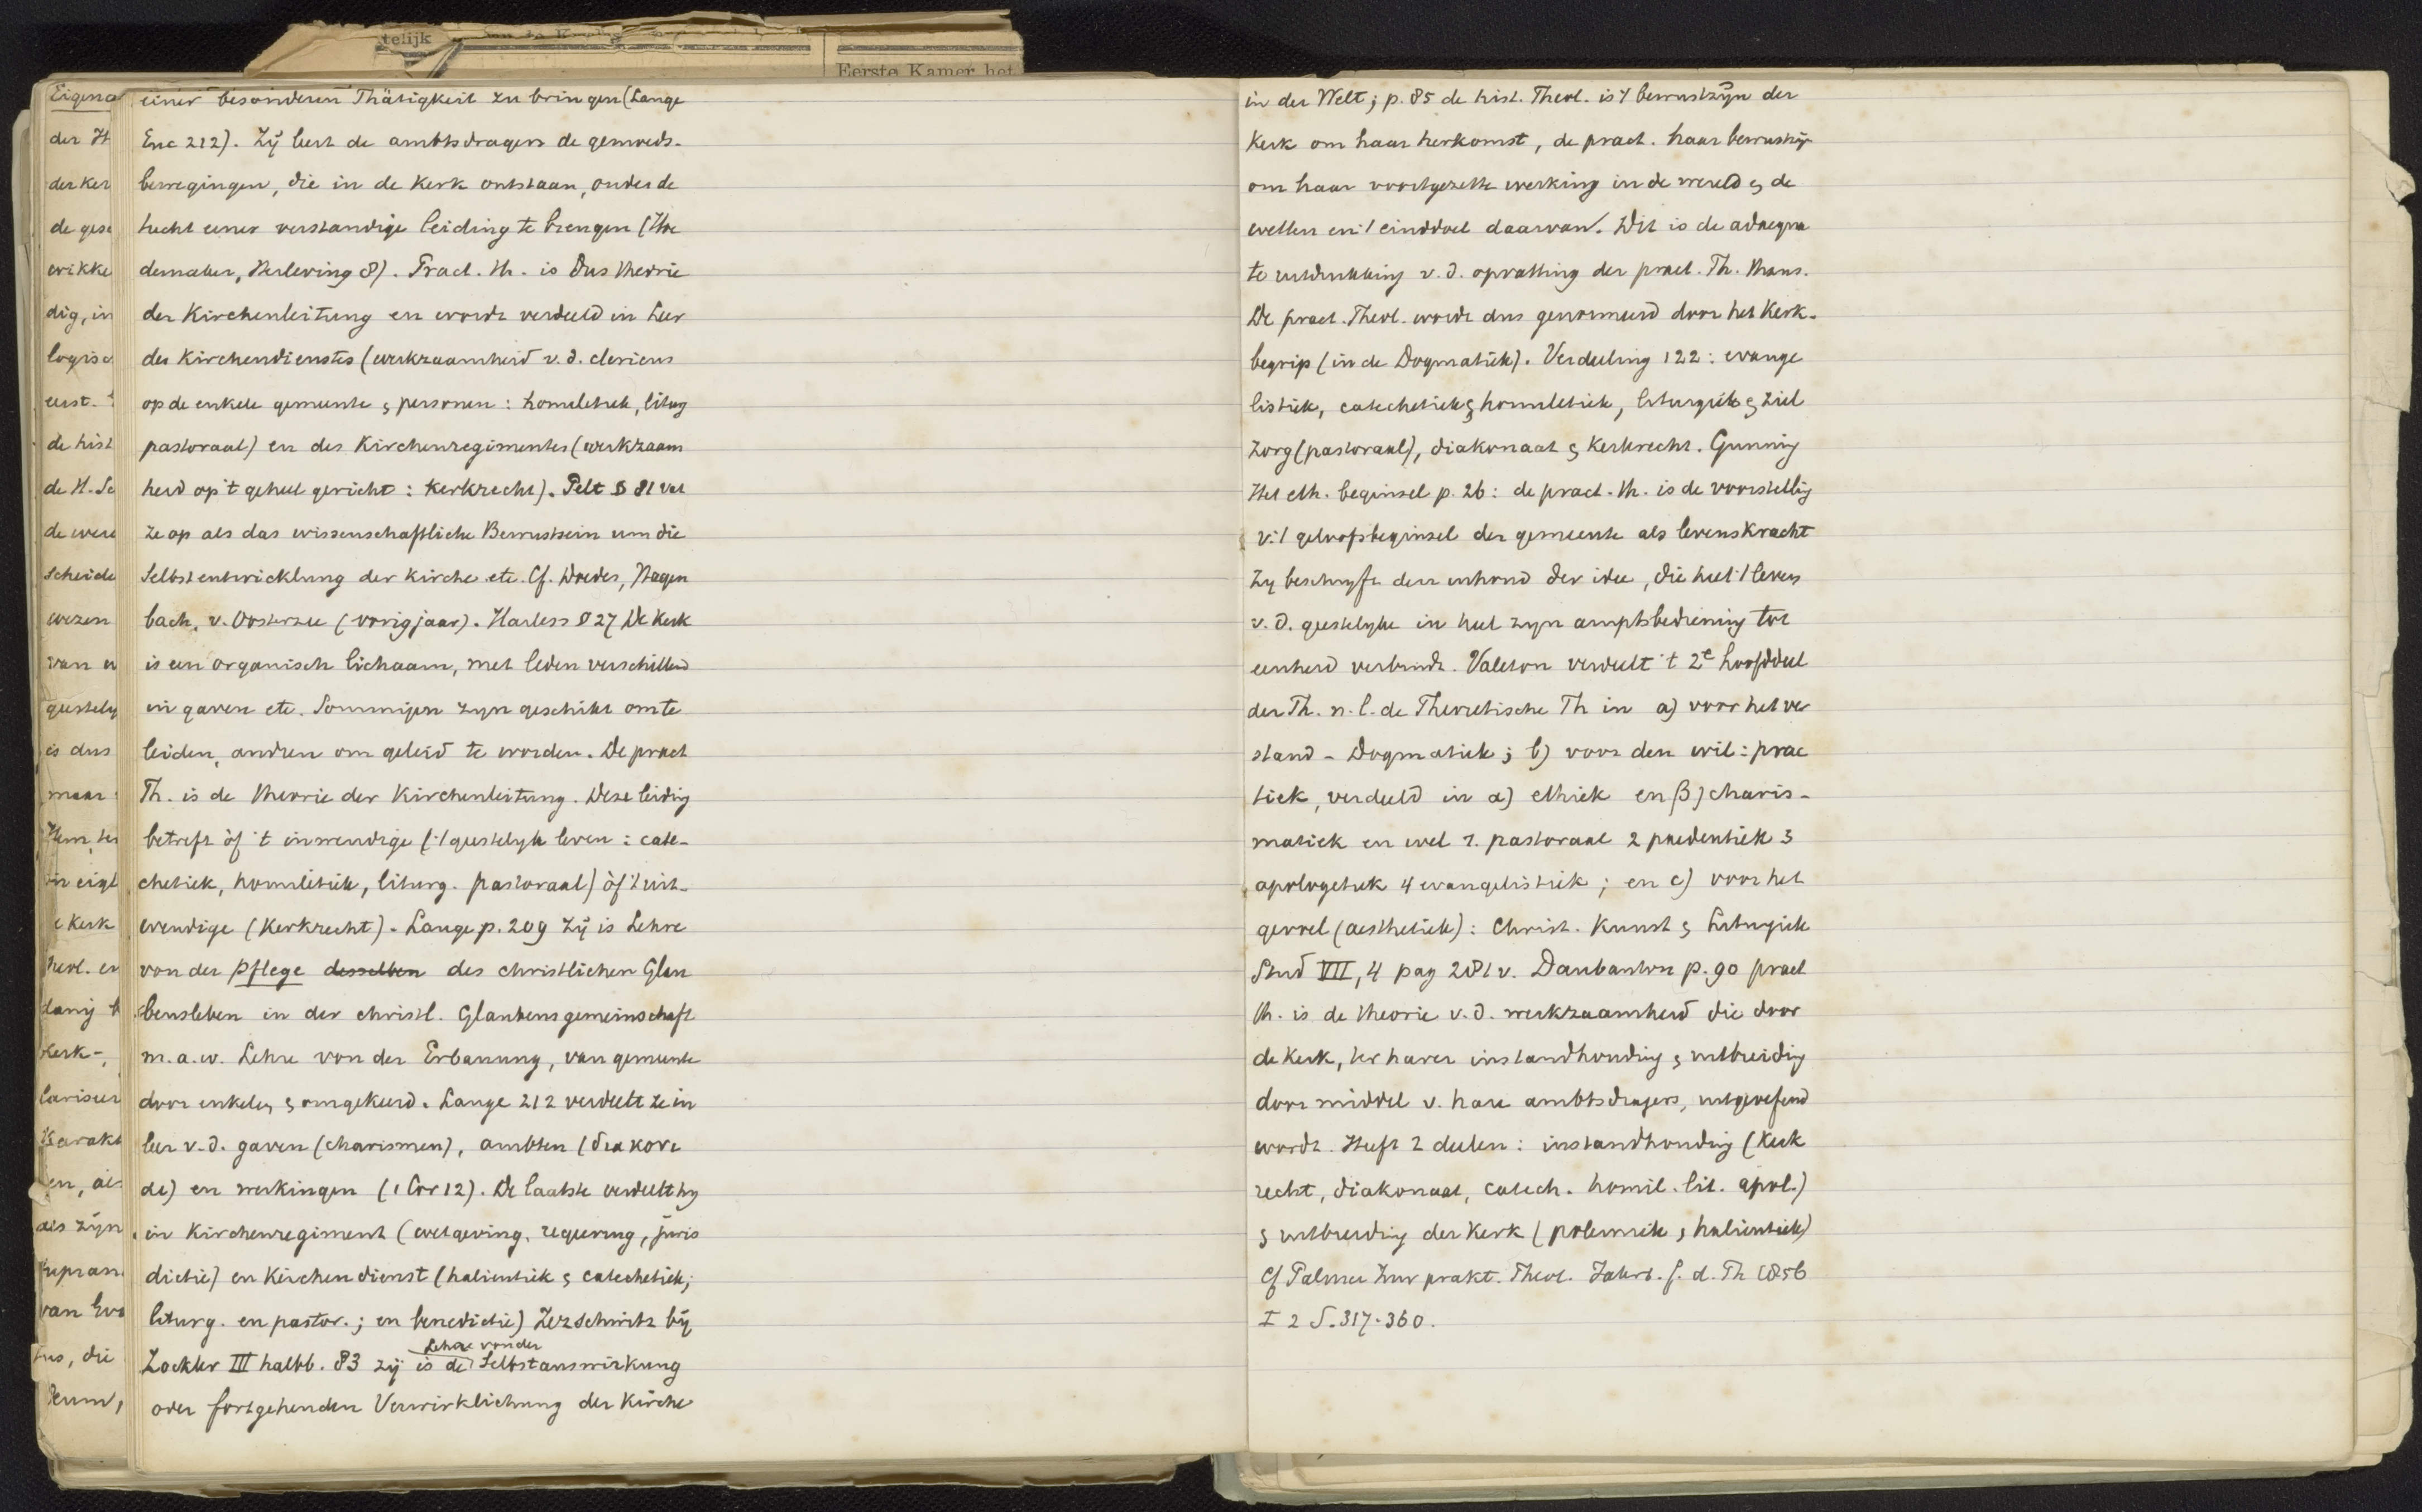 telijk
Eerste Kamer het
Eigena
der H
der ker
de gese
wikke
dig, in
logisc
eerst.
de hist
de H. Sc
de were
scheide
wezen
van
geestely
is dus
maar
Kerk
Theol. en
Kerk-,
en, als
als zijn
van
die
einer besonderen Thätigkeit zu bringen (Lange
Enc 212). Zij leert de ambtsdragers de gemoeds-
bewegingen, die in de Kerk ontstaan, onder de
tucht eener verstandige leiding te brengen (Schleiermacher, Herleving 8). Pract. th. is dus theorie
der Kirchenleitung en wordt verdeeld in Leer
des Kirchendienstes (werkzaamheid v. d. clericus
op de enkele gemeente & personen: homiletiek, liturg
pastoraal) en des Kirchenregimentes (werkzaam
heid op 't geheel gericht: kerkrecht). Pelt § 81 vat
ze op als das wissenschaftliche Bewustsein um die
Selbstentwicklung der Kirche etc. Cf. Doedes, Hagen
bach, v. Oosterzee (vorig jaar). Harless § 27 De Kerk
is een organisch lichaam, met leden verschillend
in gaven etc. Sommigen zyn geschikt om te
leiden, andren om geleid te worden. De pract
Th. is de theorie der Kirchenleitung. Deze leiding
betreft òf 't inwendige ('t geestelyk leven: cate-
chetiek, homiletiek, liturg. pastoraal) òf 't uit-
wendige (Kerkrecht). Lange p. 209 Zij is Lehre
von der Pflege desselben des christlichen Glau
benslebens in der christl. Glaubensgemeinschaft
m.a.w. Lehre von der Erbauung, van gemeente
door enkelen & omgekeerd. Lange 212 verdeelt ze in
leer v. d. gaven (charismen), ambten (diakonie
de) en werkingen (1 Cor 12). De laatste verdeelt hy
in Kirchenregiment (wetgeving, regeering, juris
dictie) en Kirchendienst (halieutiek & catechetiek;
liturg. en pastor.; en benedictie) Zezschwitz bij
Lehre von der
Zöckler III halbb. 83 zij is de Selbstauswirkung
oder fortgehenden Verwirklichung der Kirche
in der Welt; p. 85 de hist. Theol. is 't bewustzijn der
Kerk om haar herkomst, de pract. haar bewustzijn
om haar voortgezette werking in de wereld & de
wetten en 't einddoel daarvan. Dit is de adaequa
te uitdrukking v. d. opvatting der pract. Th. thans.
De pract. Theol. wordt dus genormeerd door het Kerk-
begrip (in de Dogmatiek). Verdeeling 122: evange
listiek, catechetiek & homiletiek, liturgiek & ziel
zorg (pastoraal), diakonaat & Kerkrecht. Gunning
Het eth. beginsel p. 26: de pract. th. is de voorstelling
v. 't geloofsbeginsel der gemeente als levenskracht
Zy beschryft den inhoud der idee, die heel 't leven
v. d. geestelyke in heel zyn amptsbediening tot
eenheid verbindt. Valeton verdeelt 't 2e hoofddeel
der Th. n. l. de Theoretische Th in a) voor het ver
stand - Dogmatiek; b) voor den wil: prac
tiek, verdeeld in α) ethiek en β) charis-
matiek en wel 1. pastoraal 2 paedeutiek 3
apologetiek 4 evangelistiek; en c) voor het
gevoel (aesthetiek): Christ. Kunst & Liturgiek
Stud VII, 4 pag 281 v. Daubanton p. 90 pract
th. is de theorie v. d. werkzaamheid die door
de Kerk, ter harer instandhouding & uitbreiding
door middel v. hare ambtsdragers, uitgeoefend
wordt. Heeft 2 deelen: instandhouding (Kerk
recht, diakonaat, catech. homil. lit. apol.)
& uitbreiding der Kerk (polemiek & halieutiek)
Cf Palmer Zur prakt. Theol. Jahrb. f. d. Th 1856
I 2 S. 317-360.